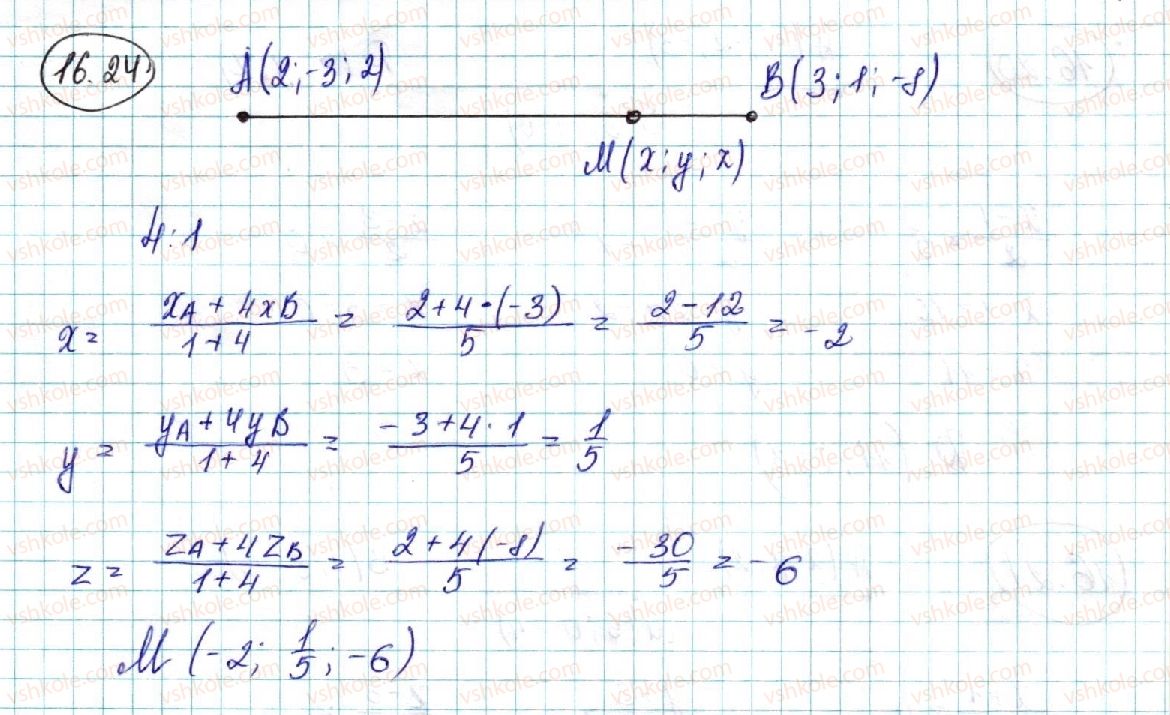 16.24)
A(2; -3; 2)
B(3; 1; -8)
M(x; y; z)
4:1
x = (xA + 4xB)/(1+4) = (2+4•(-3))/5 = (2-12)/5 = -2
y = (yA + 4yB)/(1+4) = (-3+4·1)/5 = 1/5
z = (zA + 4zB)/(1+4) = (2+4(-8))/5 = (-30)/5 = -6
M (-2; 1/5; -6)
vshkole.com